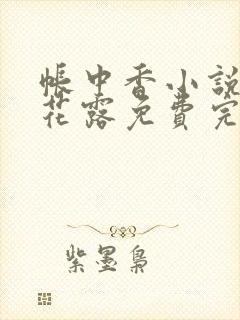 帳中香小說
花露免費完
紫墨梟